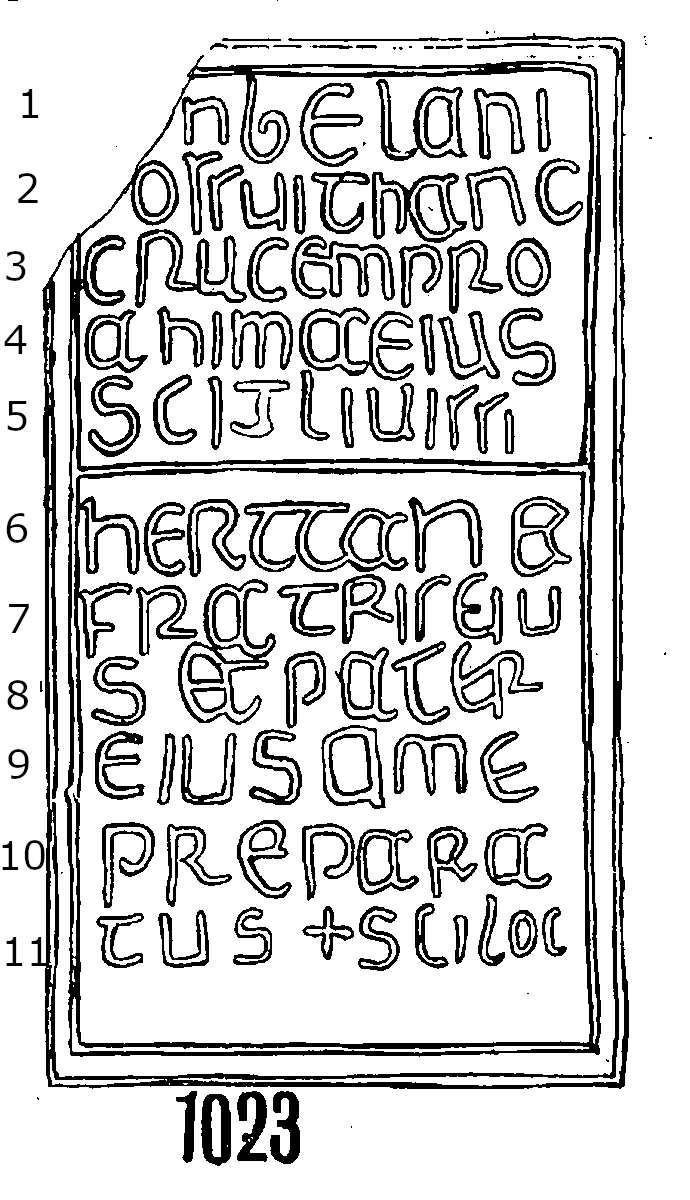 1 nbelani
2 ossuithanc
3 crucempro
4 animaeius
5 scitliuissi
6 herttan &
7 fratriseiu
8 s etpater
9 eiusame
10 prepara
11 tus +sciloc
1023